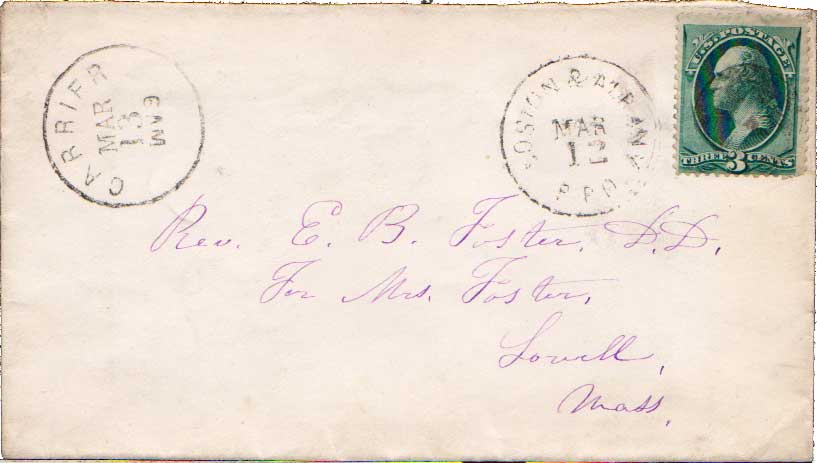 CARRIER
MAR
13
9 AM
BOSTON & ALBANY
MAR
12
R P O
U.S. POSTAGE
THREE 3 CENTS
Rev. E. B. Foster, D.D.
For Mrs. Foster,
Lowell,
Mass.